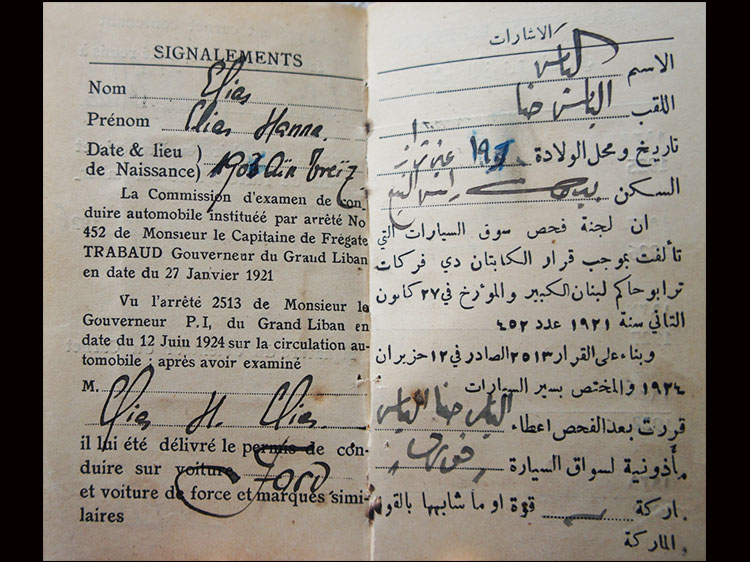 SIGNALEMENTS
Nom Elias
Prénom Elias Hanna.
Date & lieu )
de Naissance) 190 Aïn Treïz
La Commission d'examen de con-
duire automobile instituéé par arrêté No
452 de Monsieur le Capitaine de Frégate
TRABAUD Gouverneur du Graud Liban
en date du 27 Janvier 1921
Vu l'arrêté 2513 de Monsieur le
Gouverneur P.I, du Grand Liban en
date du 12 Juin 1924 sur la circulation au-
tomobile ; après avoir examiné
M.
Elias H. Elias.
il lui été délivré le permis de con-
duire sur voiture Ford
et voiture de force et marques simi-
laires
الاشارات
الاسم الياس
اللقب الياس حنا
تاريخ ومحل الولادة ١٩٠ عين تريز
السكن بيروت راس النبع
ان لجنة فحص سوق السيارات التي
تألفت بموجب قرار الكابتان دي فركات
ترابو حاكم لبنان الكبير والمؤرخ في ٢٧ كانون
الثاني سنة ١٩٢١ عدد ٤٥٢
وبناء على القرار ٢٥١٣ الصادر في ١٢ حزيران
١٩٢٤ والمختص بسير السيارات
قررت بعد الفحص اعطاء الياس حنا الياس
مأذونية لسواق السيارة فورد
ماركة قوة او ما شابهها بالقوة
الماركة